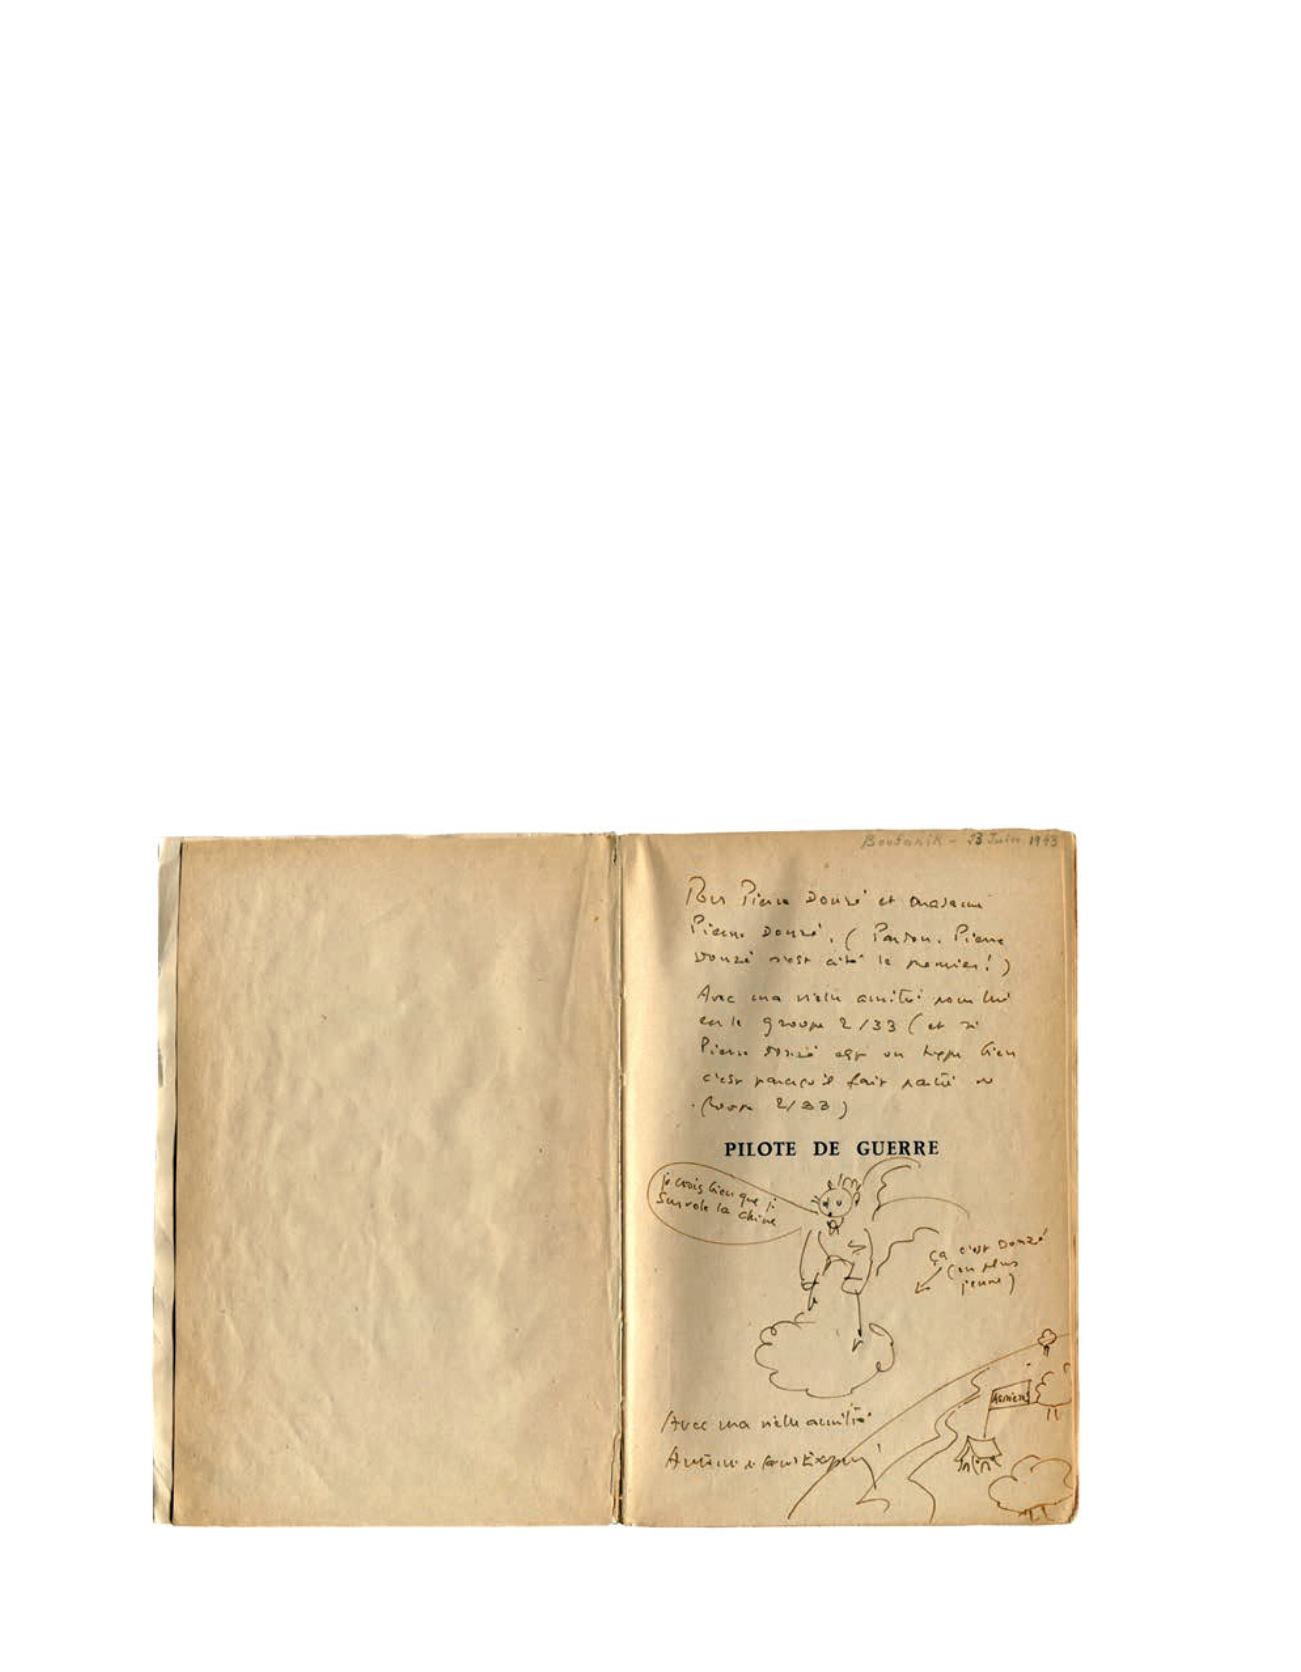 Boufarik - 23 Juin 1943
Pour Pierre Donzé et madame
Pierre Donzé. (Pardon. Pierre
Donzé n'est cité le premier!)
Avec ma vieille amitié pour lui
et le groupe 2/33 (et si
Pierre Donzé est un type bien
c'est parcequ'il fait partie du
groupe 2/33)
PILOTE DE GUERRE
je crois bien que je
survole la Chine
ça c'est Donzé
(en plus
jeune)
Asnières
Avec ma vieille amitié
Antoine de Saint Exupéry